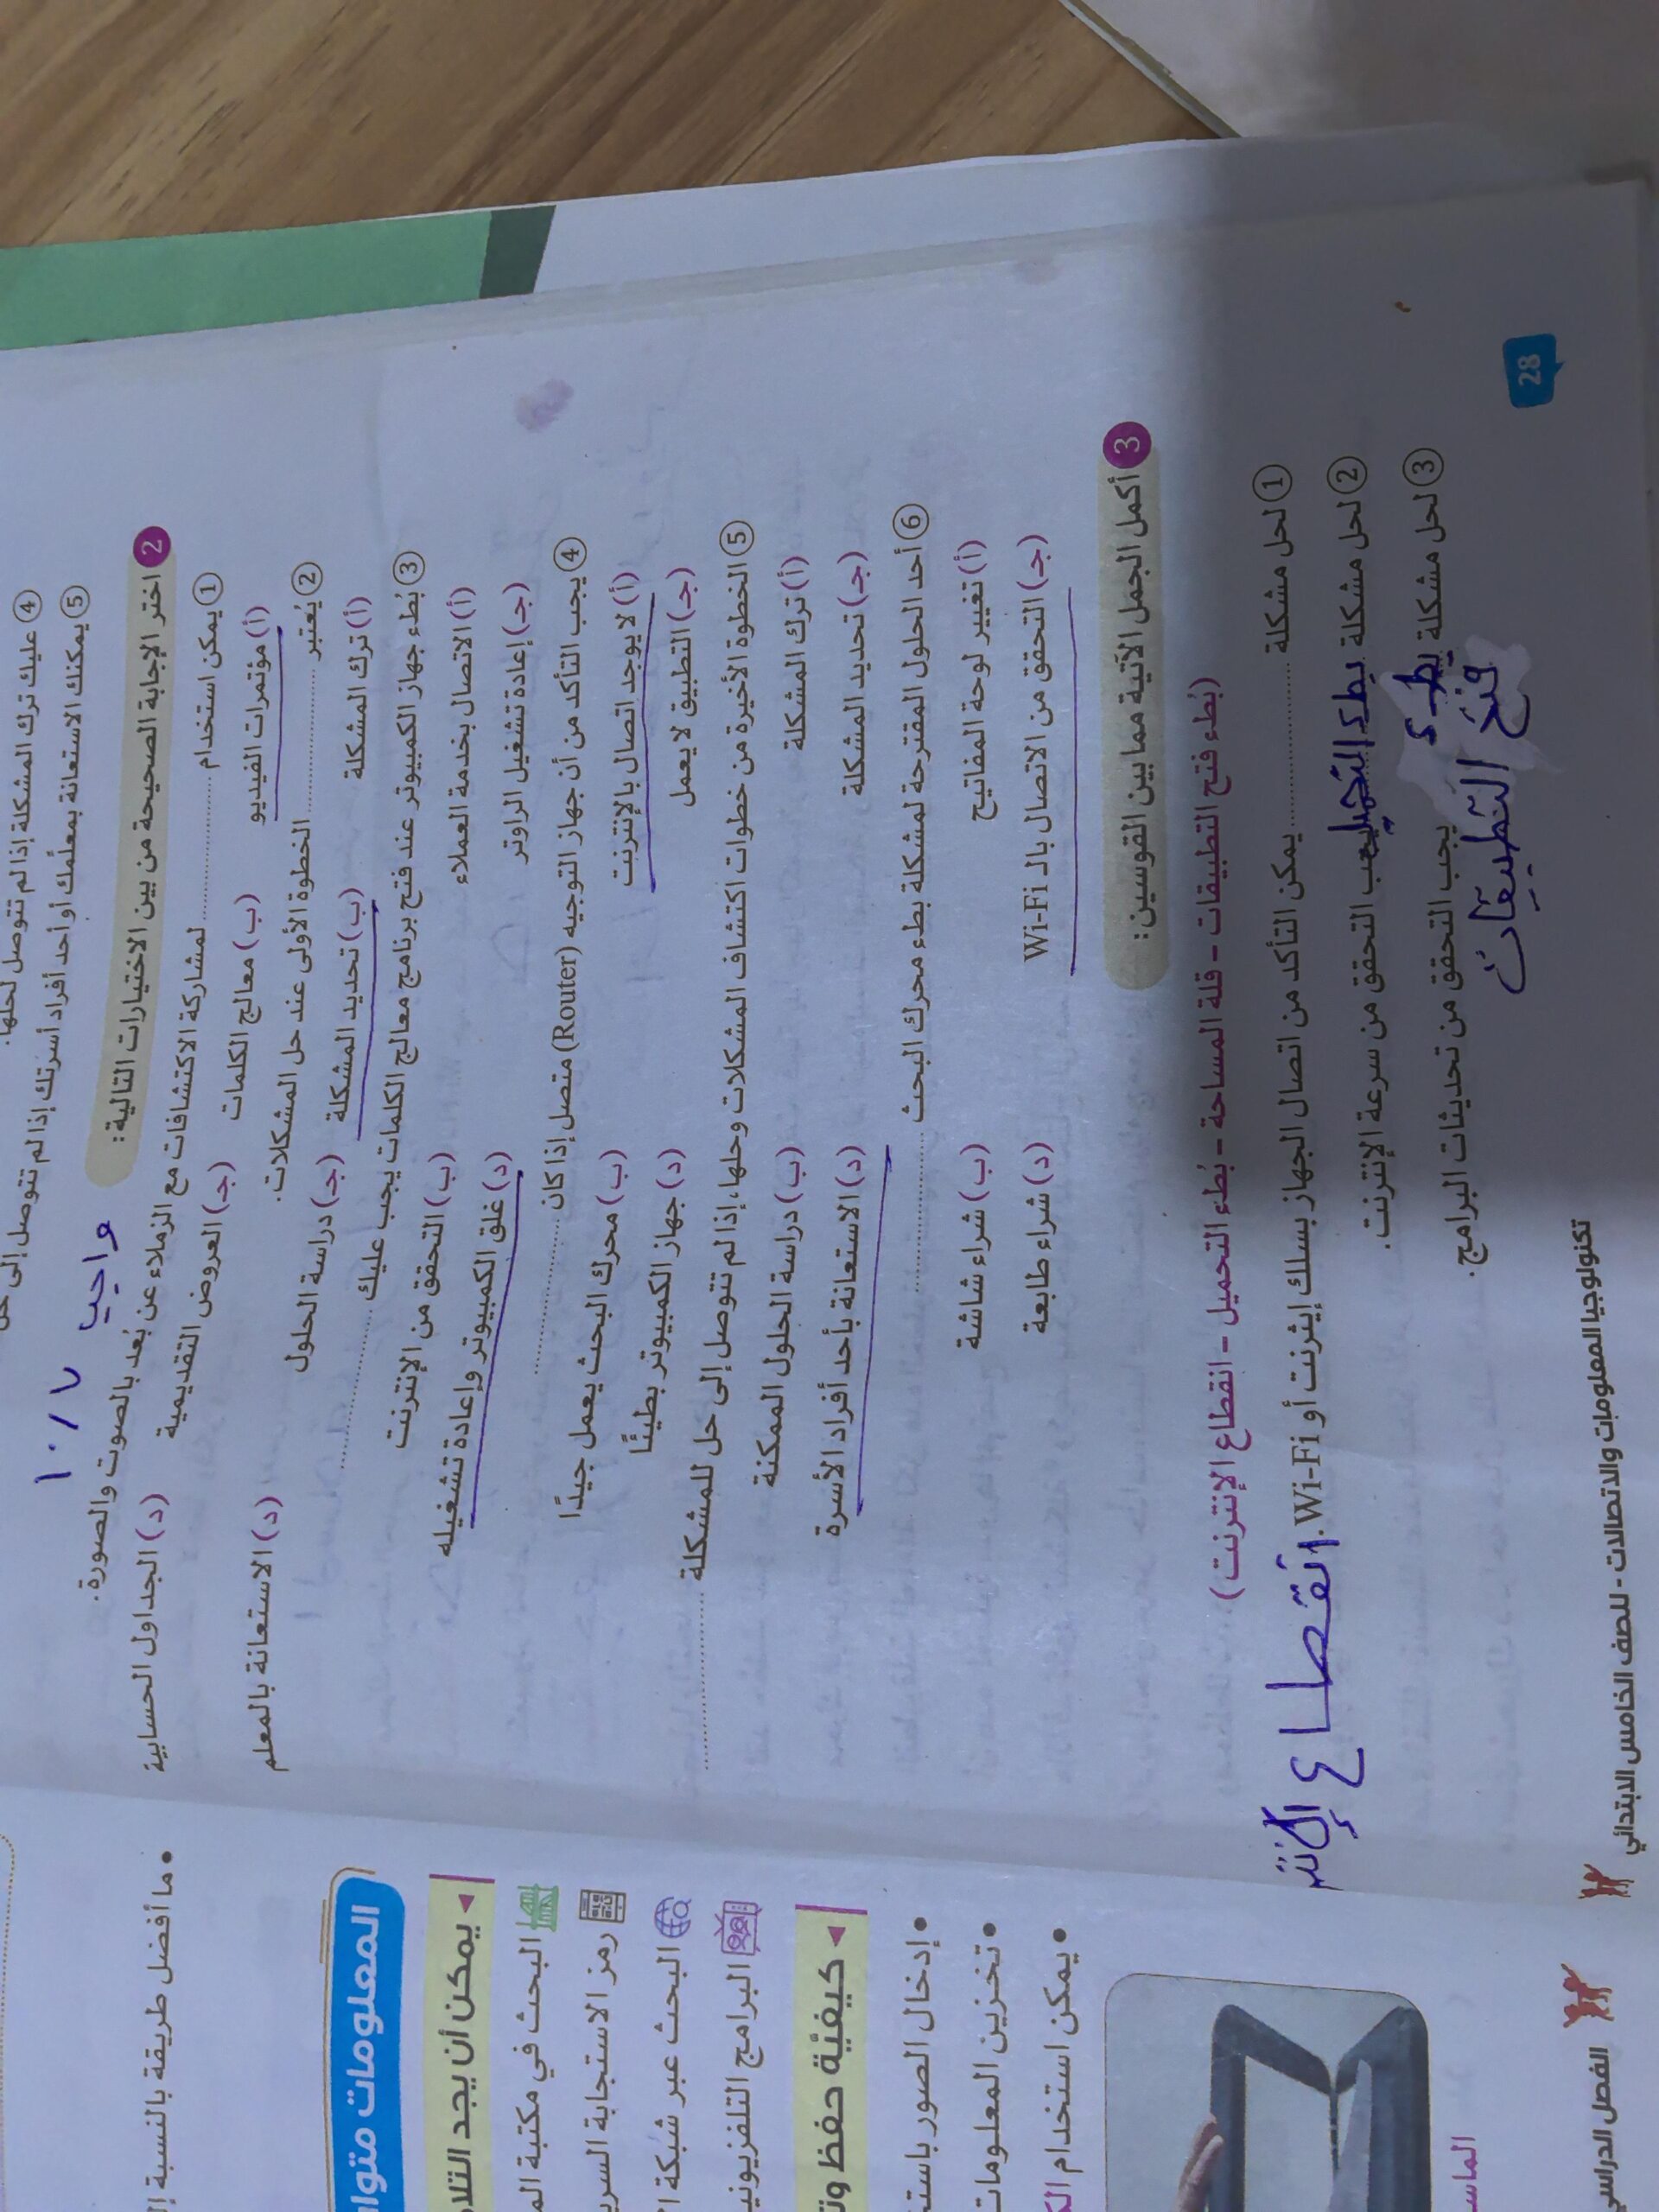 ④ عليك ترك المشكلة إذا لم تتوصل لحلها.
⑤ يمكنك الاستعانة بمعلمك أو أحد أفراد أسرتك إذا لم تتوصل إلى حل
١٠/٧ واجب
2 اختر الإجابة الصحيحة من بين الاختيارات التالية:
① يمكن استخدام .......... لمشاركة الاكتشافات مع الزملاء عن بُعد بالصوت والصورة.
(أ) مؤتمرات الفيديو (ب) معالج الكلمات (جـ) العروض التقديمية (د) الجداول الحسابية
② يُعتبر .......... الخطوة الأولى عند حل المشكلات.
(أ) ترك المشكلة (ب) تحديد المشكلة (جـ) دراسة الحلول (د) الاستعانة بالمعلم
③ بُطء جهاز الكمبيوتر عند فتح برنامج معالج الكلمات يجب عليك ..........
(أ) الاتصال بخدمة العملاء (ب) التحقق من الإنترنت
(جـ) إعادة تشغيل الراوتر (د) غلق الكمبيوتر وإعادة تشغيله
④ يجب التأكد من أن جهاز التوجيه (Router) متصل إذا كان ..........
(أ) لا يوجد اتصال بالإنترنت (ب) محرك البحث يعمل جيدًا
(جـ) التطبيق لا يعمل (د) جهاز الكمبيوتر بطيئًا
⑤ الخطوة الأخيرة من خطوات اكتشاف المشكلات وحلها، إذا لم تتوصل إلى حل للمشكلة ..........
(أ) ترك المشكلة (ب) دراسة الحلول الممكنة
(جـ) تحديد المشكلة (د) الاستعانة بأحد أفراد الأسرة
⑥ أحد الحلول المقترحة لمشكلة بطء محرك البحث ..........
(أ) تغيير لوحة المفاتيح (ب) شراء شاشة
(جـ) التحقق من الاتصال بالـ Wi-Fi (د) شراء طابعة
3 أكمل الجمل الآتية مما بين القوسين:
(بُطء فتح التطبيقات - قلة المساحة - بُطء التحميل - انقطاع الإنترنت)
① لحل مشكلة .......... يمكن التأكد من اتصال الجهاز بسلك إيثرنت أو Wi-Fi. انقطاع
② لحل مشكلة بطء التحميل يجب التحقق من سرعة الإنترنت.
③ لحل مشكلة بطء يجب التحقق من تحديثات البرامج.
فتح التطبيقات
28
تكنولوجيا المعلومات والاتصالات - للصف الخامس الابتدائي
• ما أفضل طريقة بالنسبة
المعلومات
◄ يمكن أن يجد
البحث في مكتبة
رمز الاستجابة
البحث عبر شبكة
البرامج التلفزيونية
◄ كيفيَّة حفظ
• إدخال الصور
• تخزين المعلومات
• يمكن استخدام
الفصل الدراسي